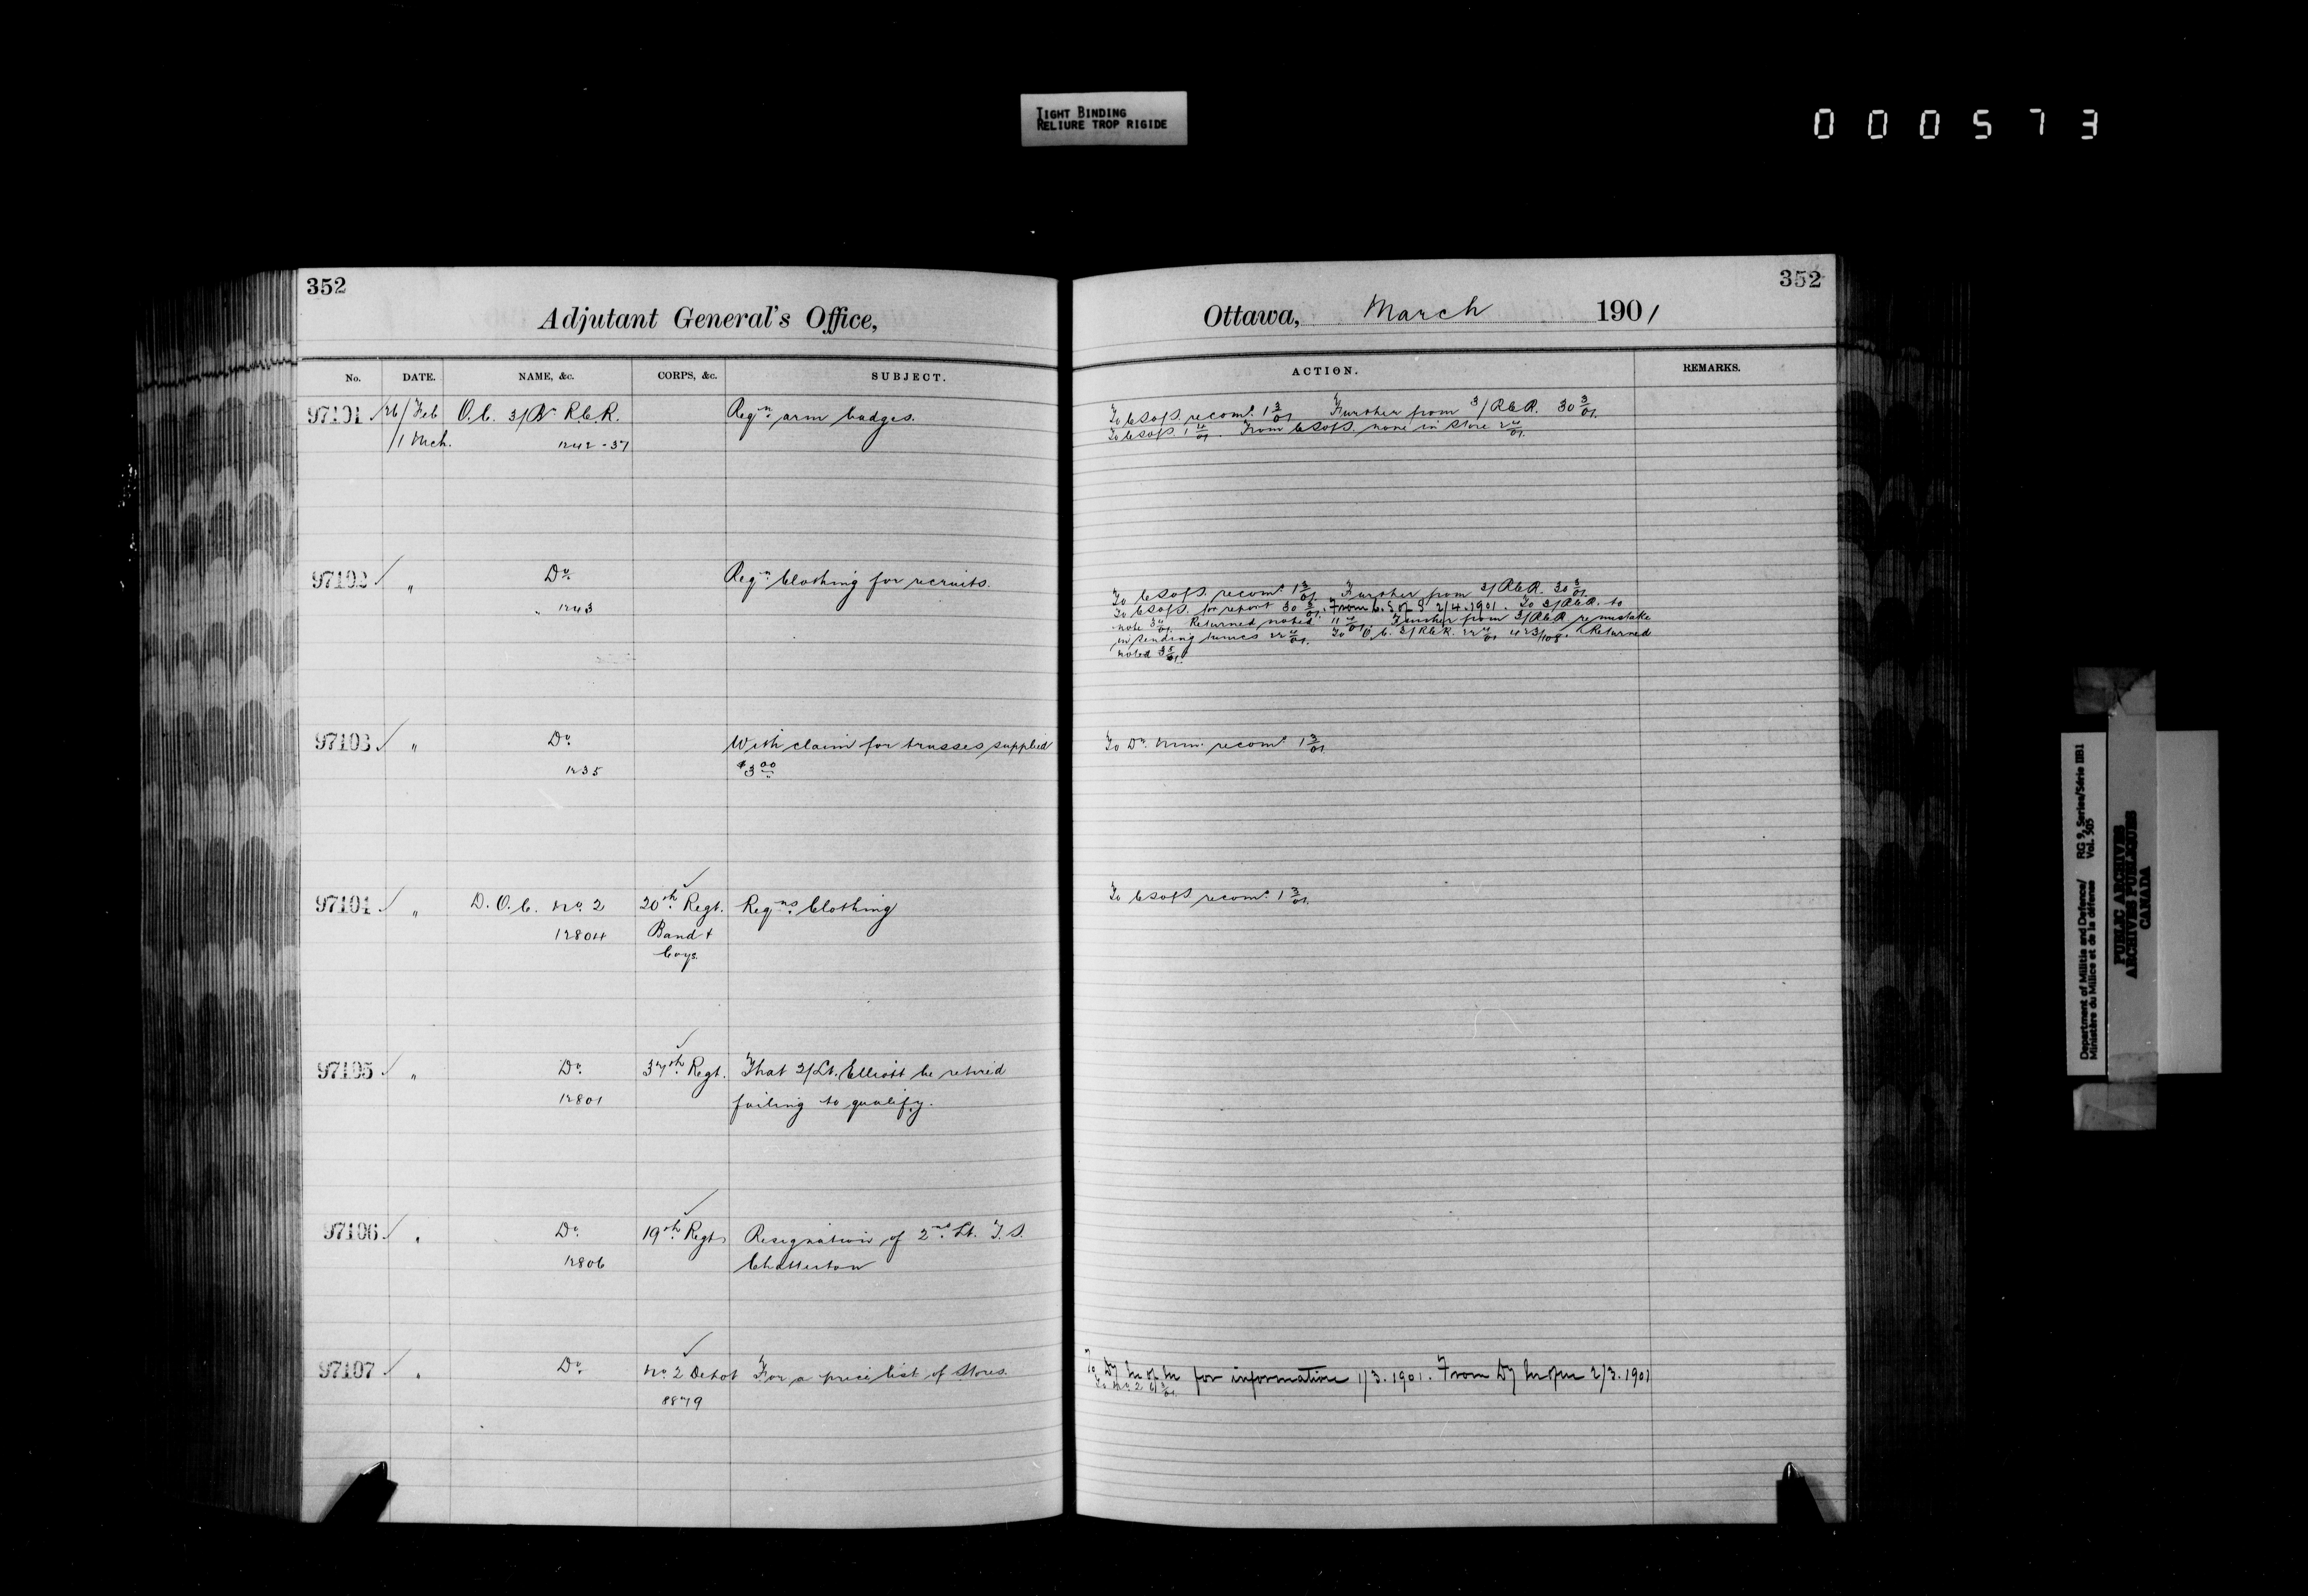 TIGHT BINDING
RELIURE TROP RIGIDE
000573
352
Adjutant General's Office,
No. DATE. NAME, &c. CORPS, &c. SUBJECT.
97101 26/Feb O.C. 3/Bn R.C.R. Reqn arm badges.
/1 Mch. 1242-37
97102 " Do Reqn Clothing for recruits.
" 1243
97103 " Do With claim for trusses supplied
1235 $3.00
97104 " D.O.C. No. 2 20th Regt. Reqns Clothing
12804 Band &
Coys.
97105 " Do 37th Regt. That 2/Lt. Elliott be retired
12801 failing to qualify.
97106 " Do 19th Regt. Resignation of 2nd Lt. T.S.
12806 Chatterton
97107 " Do No. 2 Depot For a price list of Stores.
8879
352
Ottawa, March 1901
ACTION. REMARKS.
To C S of S. recomd. 1 3/01. Further from 3/R.C.R. 30 3/01.
To C S of S. 1 4/01. From C S of S. none in store 2 4/01.
To C S of S. recomd. 1 3/01. Further from 3/R.C.R. 30 3/01.
To C S of S. for report 30 3/01. From C. S of S 2/4.1901. To 3/R.C.R. to
note 3 4/01. Returned noted 11 4/01. Further from 3/R.C.R. re mistake
in sending tunics 22 4/01. To O.C. 3/R.C.R. 22 4/01 423/108. Returned
noted 3 5/01.
To Do. recomd. 1 3/01.
To C S of S recomd. 1 3/01.
To Dy M of M for information 1/3.1901. From Dy M of M 2/3.1901
To No. 2 6/3/01.
Department of Militia and Defence/ RG 9, Series/Série IIB1
Ministère du Milice et de la défense Vol. 505
PUBLIC ARCHIVES
ARCHIVES PUBLIQUES
CANADA